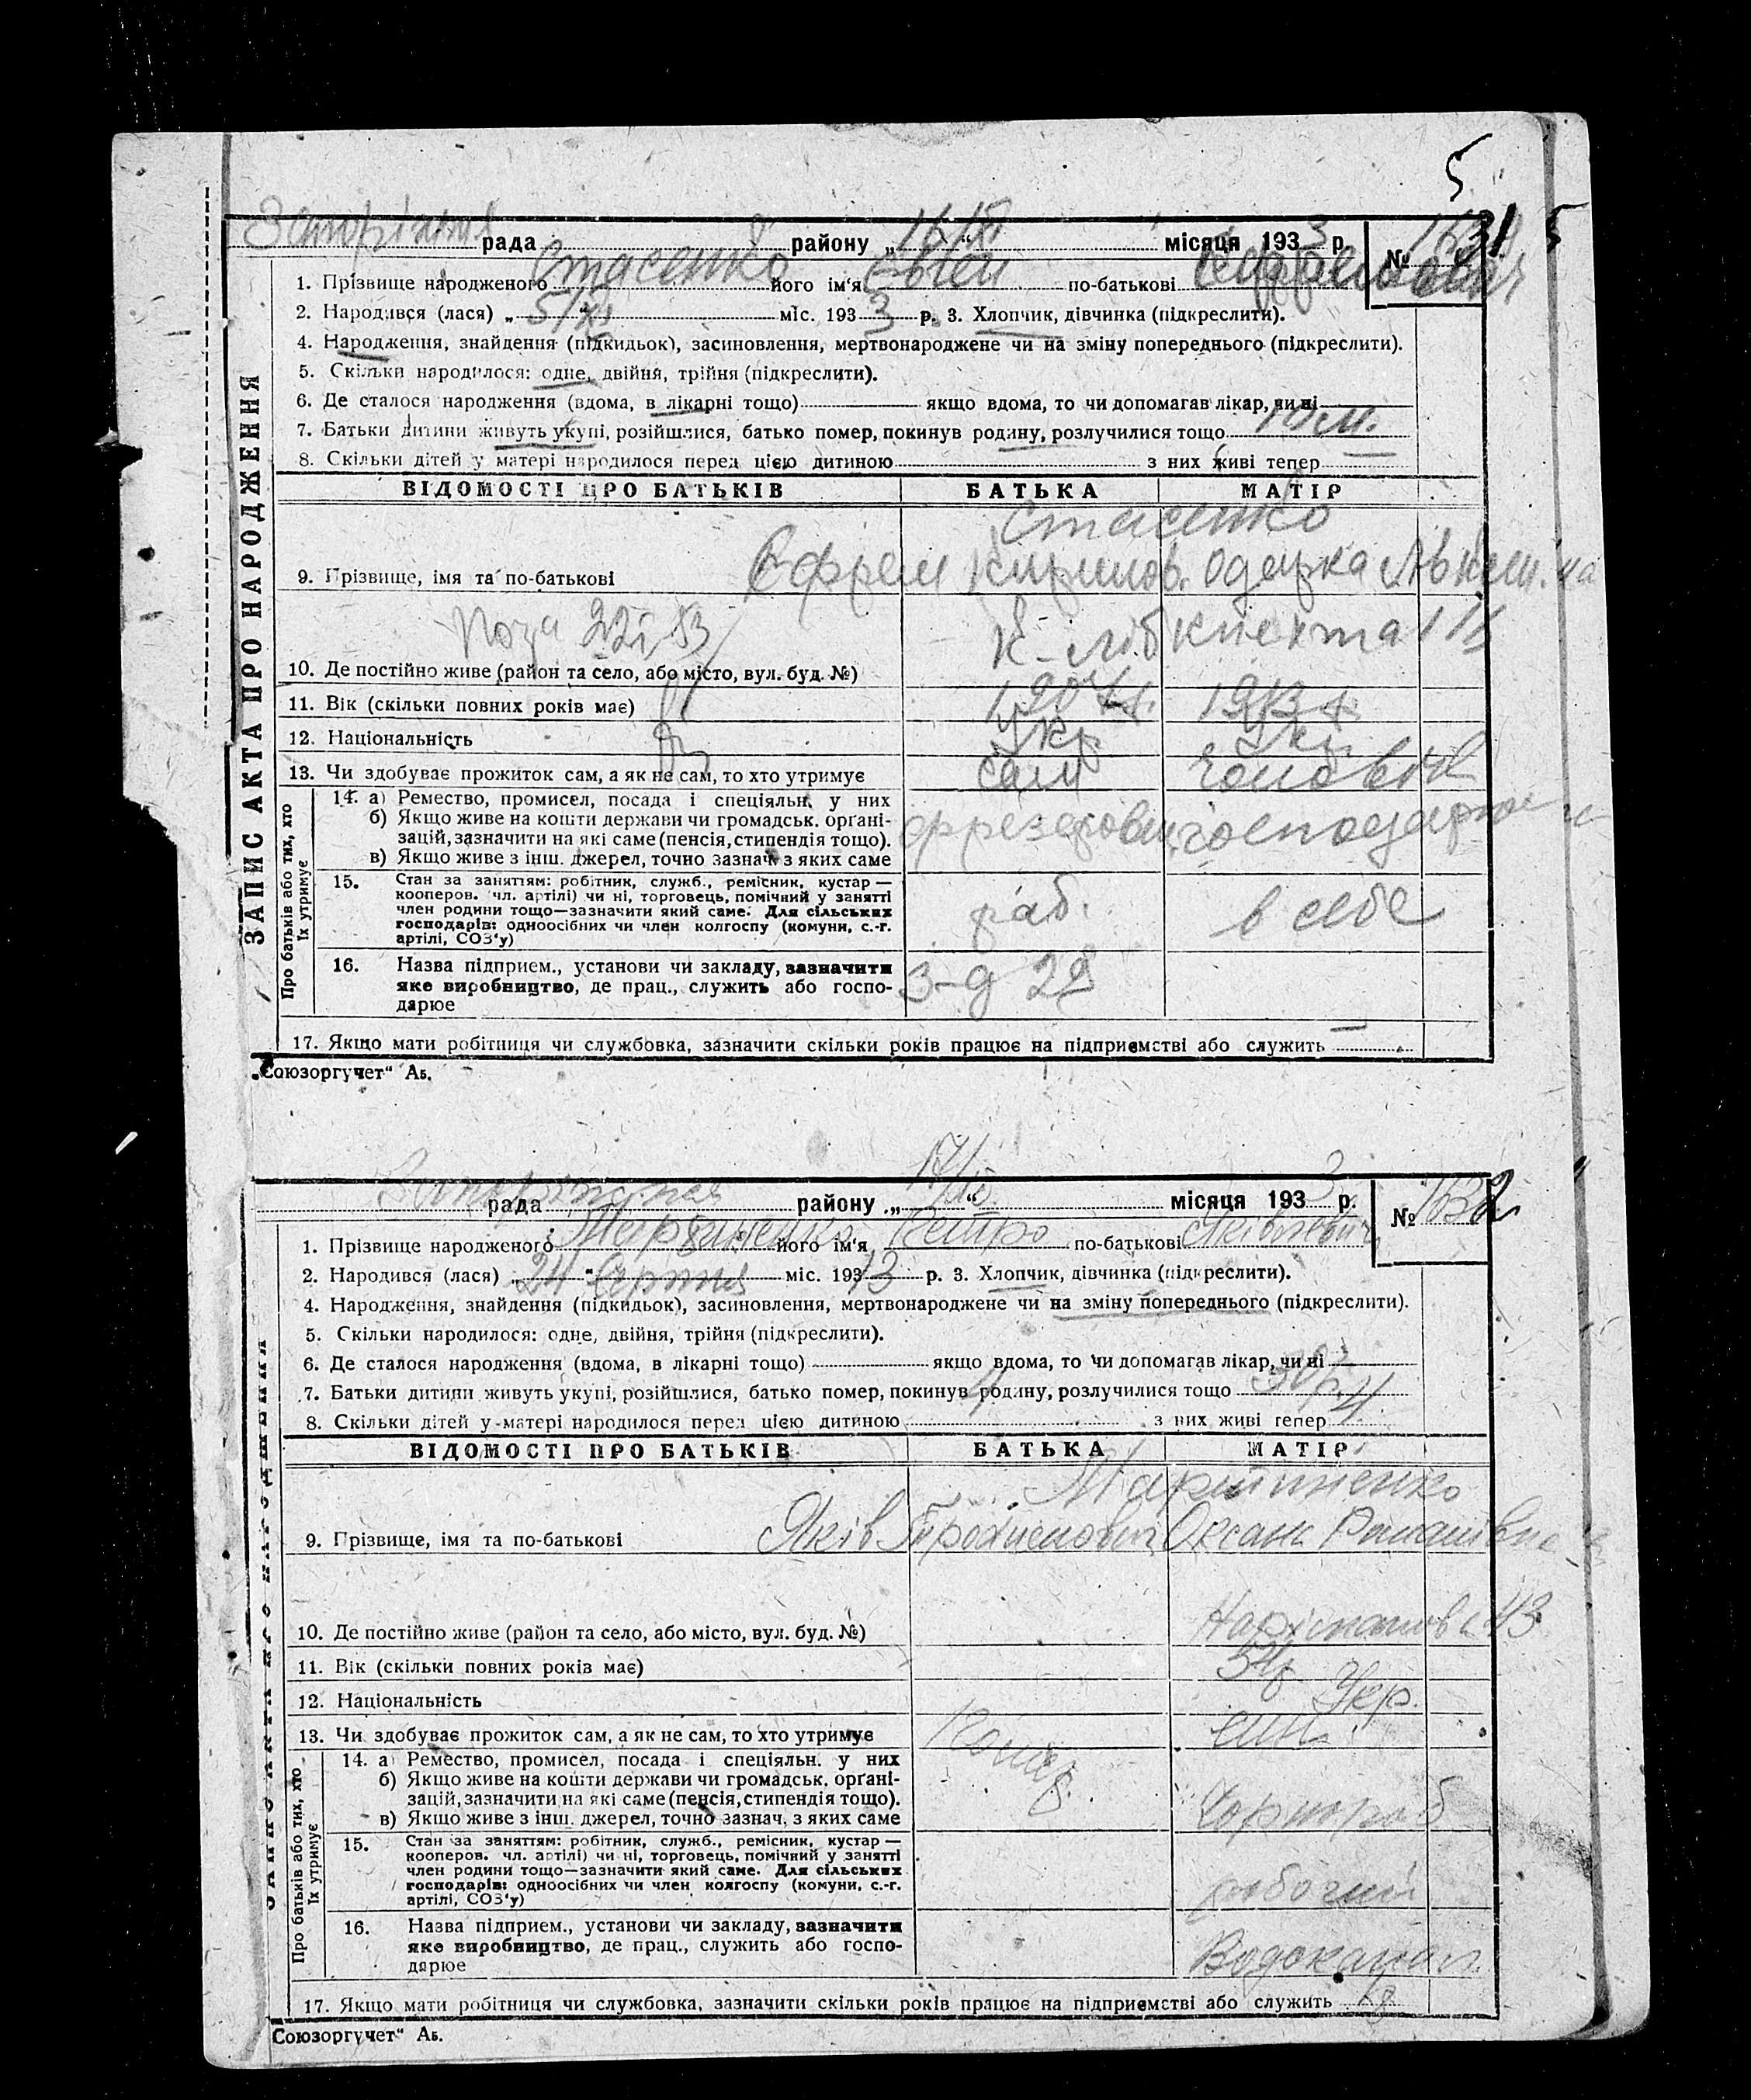 5
Запоріжжя рада району „ 16/XI “ місяця 1933 р. № 1631 5
1. Прізвище народженого Стасенко його ім'я Євген по-батькові Єфремович
2. Народився (лася) „ 5/XI “ міс. 1933 р. 3. Хлопчик, дівчинка (підкреслити).
4. Народження, знайдення (підкидьок), засиновлення, мертвонароджене чи на зміну попереднього (підкреслити).
5. Скільки народилося: одне, двійня, трійня (підкреслити).
6. Де сталося народження (вдома, в лікарні тощо) якщо вдома, то чи допомагав лікар, чи ні
7. Батьки дитини живуть укупі, розійшлися, батько помер, покинув родину, розлучилися тощо
8. Скільки дітей у матері народилося перед цією дитиною з них живі тепер
ЗАПИС АКТА ПРО НАРОДЖЕННЯ
ВІДОМОСТІ ПРО БАТЬКІВ БАТЬКА МАТІР
Стасенко
9. Прізвище, імя та по-батькові Єфрем Кирилов.
10. Де постійно живе (район та село, або місто, вул. буд. №)
11. Вік (скільки повних років має) 1907 1913
12. Національність Укр Укр
13. Чи здобуває прожиток сам, а як не сам, то хто утримує сам чоловік
Про батьків або тих, хто їх утримує
14. а) Ремество, промисел, посада і спеціяльн. у них
б) Якщо живе на кошти держави чи громадськ. орґані-
зацій, зазначити на які саме (пенсія, стипендія тощо).
в) Якщо живе з інш. джерел, точно зазнач. з яких саме
15. Стан за заняттям: робітник, служб., ремісник, кустар —
кооперов. чл. артілі) чи ні, торговець, помічний у занятті
член родини тощо—зазначити який саме. Для сільських
господарів: одноосібних чи член колгоспу (комуни, с.-г.
артілі, СОЗ'у) раб. в себе
16. Назва підприєм., установи чи закладу, зазначити
яке виробництво, де прац., служить або госпо-
дарює З-д 29
17. Якщо мати робітниця чи службовка, зазначити скільки років працює на підприємстві або служить —
„Союзоргучет“ Аб.
рада району „ “ місяця 1933 р. № 1632
1. Прізвище народженого Мартиненко його ім'я Петро по-батькові Яківлевич
2. Народився (лася) „ 24 “ Серпня міс. 1913 р. 3. Хлопчик, дівчинка (підкреслити).
4. Народження, знайдення (підкидьок), засиновлення, мертвонароджене чи на зміну попереднього (підкреслити).
5. Скільки народилося: одне, двійня, трійня (підкреслити).
6. Де сталося народження (вдома, в лікарні тощо) якщо вдома, то чи допомагав лікар, чи ні
7. Батьки дитини живуть укупі, розійшлися, батько помер, покинув родину, розлучилися тощо
8. Скільки дітей у матері народилося перед цією дитиною 4 з них живі тепер 4
ВІДОМОСТІ ПРО БАТЬКІВ БАТЬКА МАТІР
Мартиненко
9. Прізвище, імя та по-батькові Яків Оксана
10. Де постійно живе (район та село, або місто, вул. буд. №)
11. Вік (скільки повних років має) 54
12. Національність Укр.
13. Чи здобуває прожиток сам, а як не сам, то хто утримує
Про батьків або тих, хто їх утримує
14. а) Ремество, промисел, посада і спеціяльн. у них
б) Якщо живе на кошти держави чи громадськ. орґані-
зацій, зазначити на які саме (пенсія, стипендія тощо).
в) Якщо живе з інш. джерел, точно зазнач. з яких саме Чорнороб
15. Стан за заняттям: робітник, служб., ремісник, кустар —
кооперов. чл. артілі) чи ні, торговець, помічний у занятті
член родини тощо—зазначити який саме. Для сільських
господарів: одноосібних чи член колгоспу (комуни, с.-г.
артілі, СОЗ'у) робочий
16. Назва підприєм., установи чи закладу, зазначити
яке виробництво, де прац., служить або госпо-
дарює Водоканал
17. Якщо мати робітниця чи службовка, зазначити скільки років працює на підприємстві або служить
Союзоргучет“ Аб.